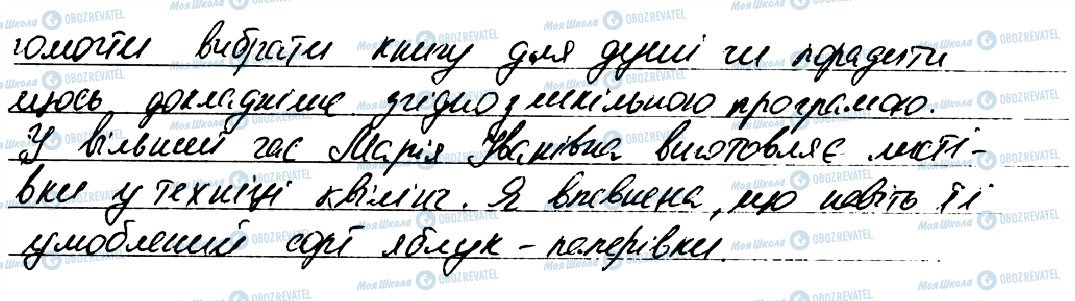 помогти вибрати книгу для душі чи порадити
щось докладніше згідно з шкільною програмою.
У вільний час Марія Іванівна виготовляє листі-
вки у техніці квілінг. Я впевнена, що навіть її
улюблений сорт яблук - паперівки.